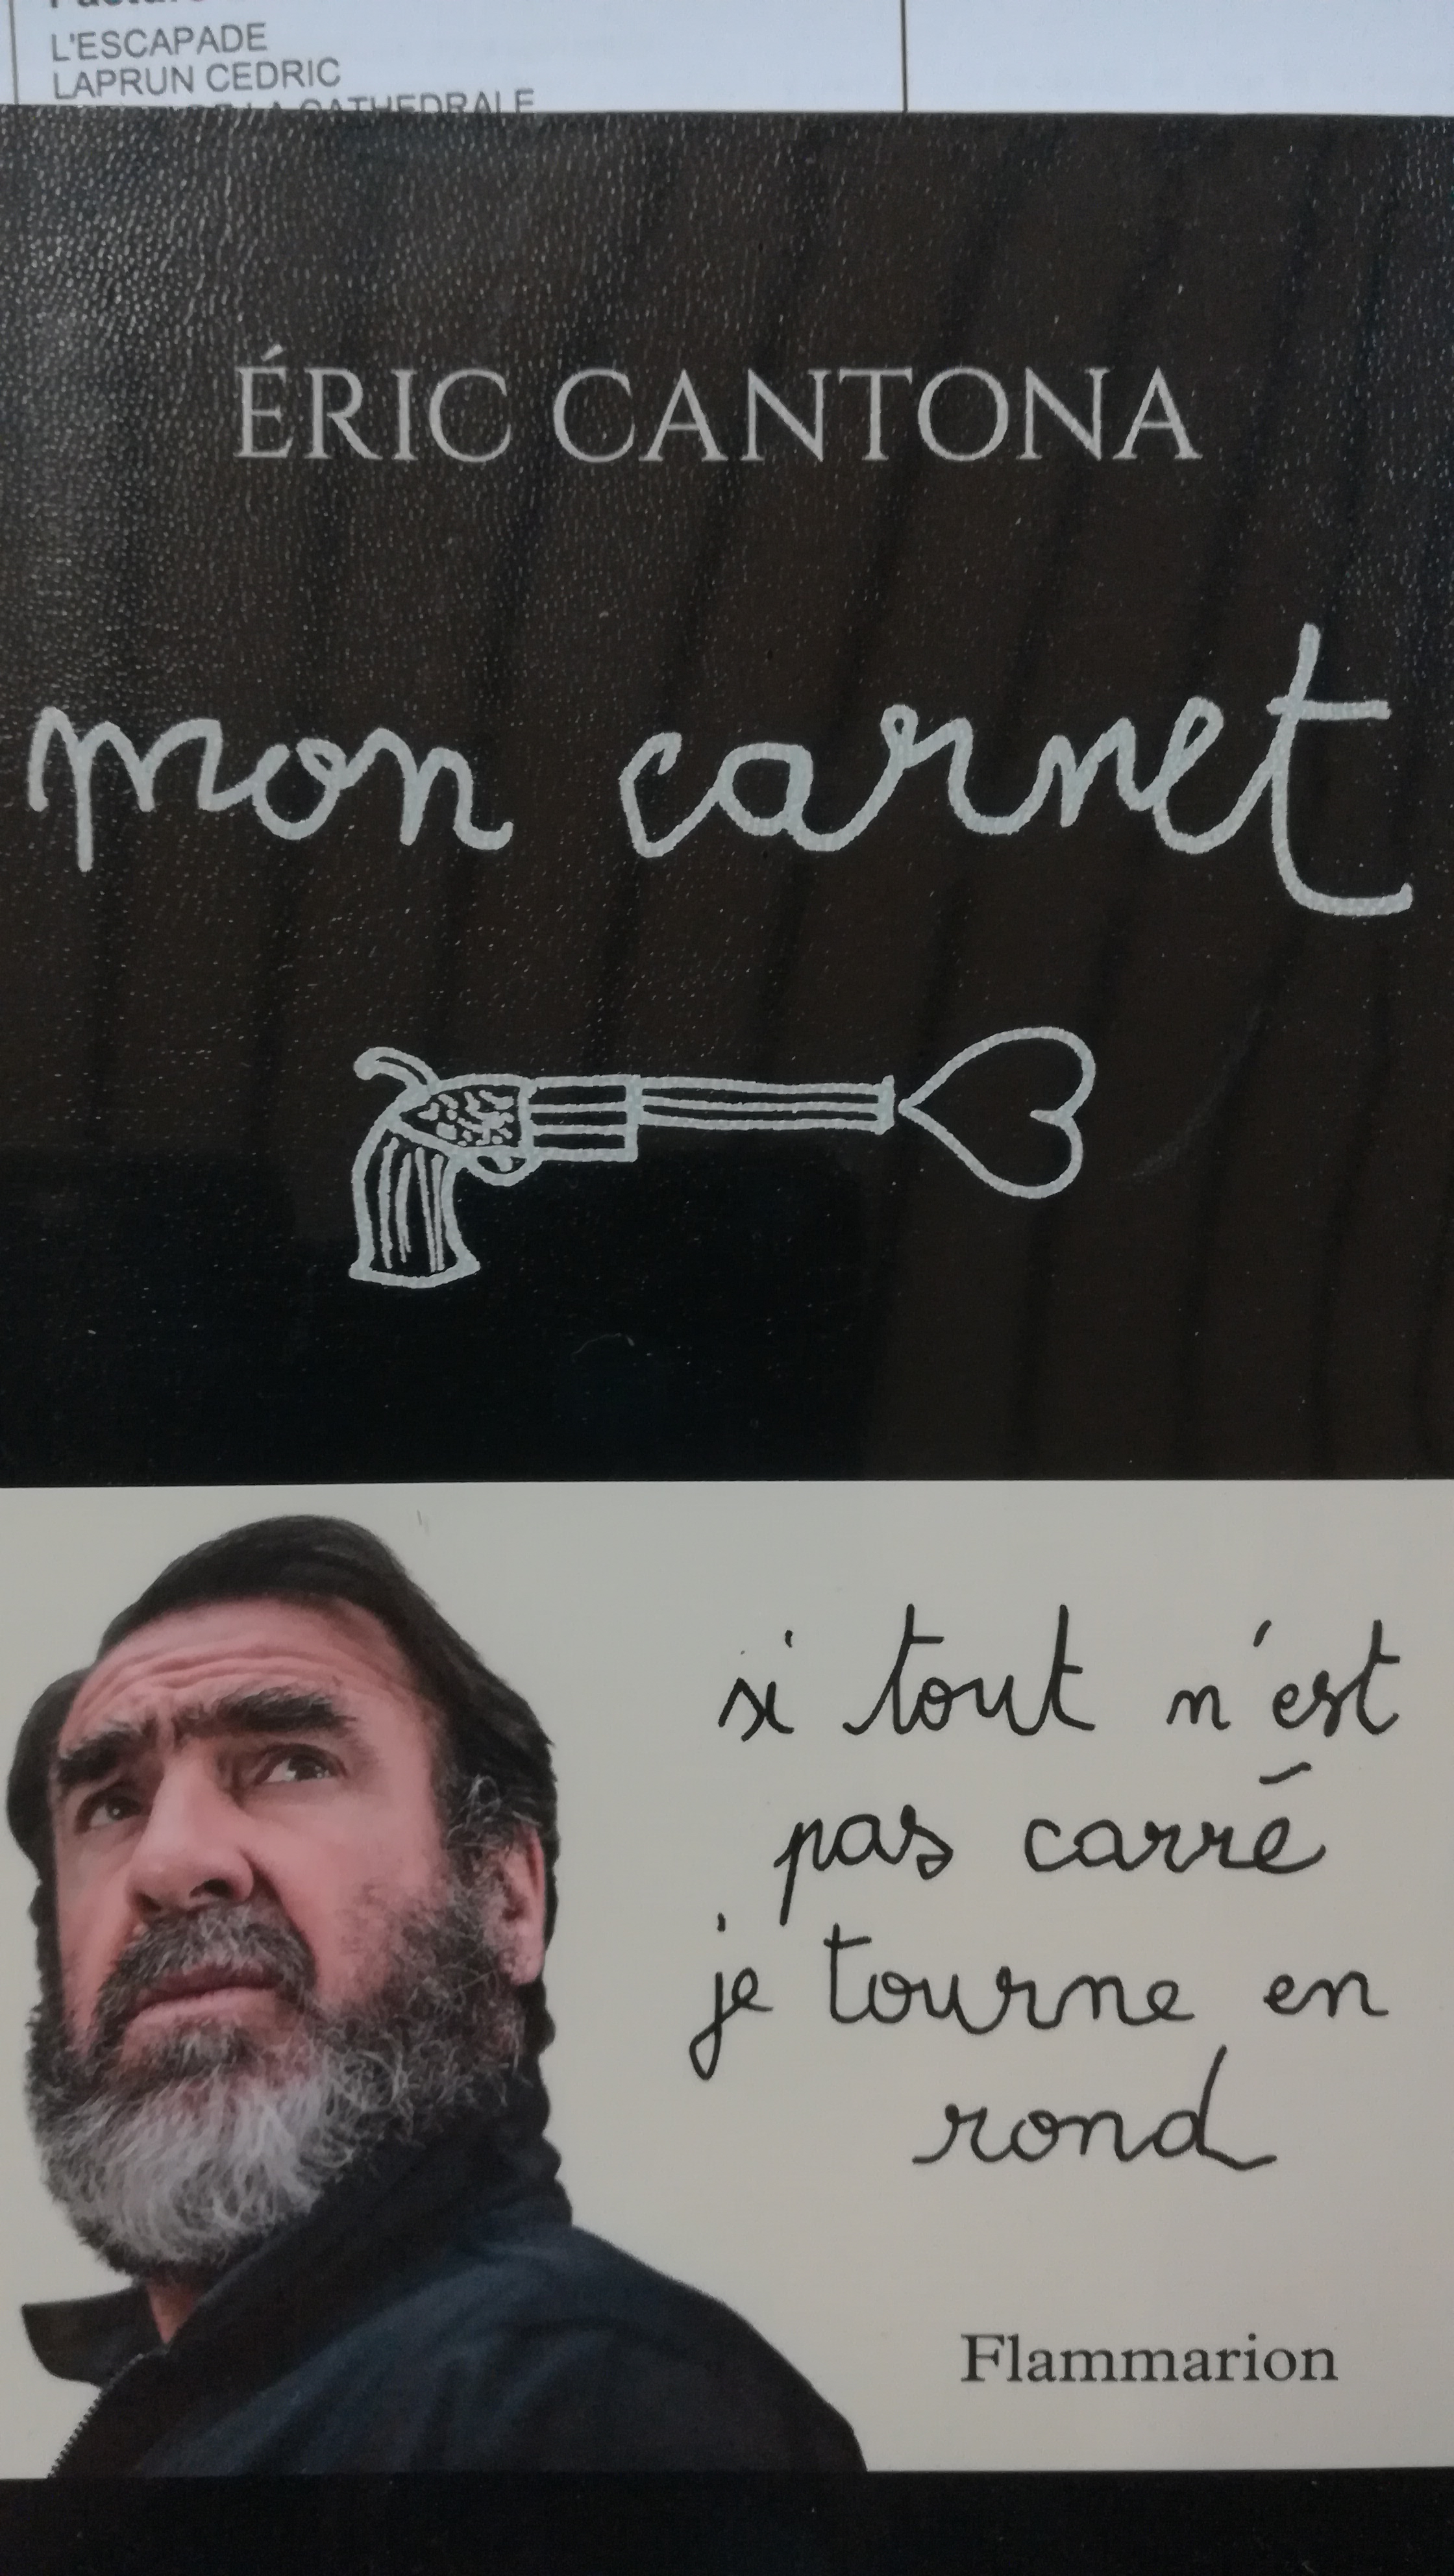 L'ESCAPADE
LAPRUN CEDRIC
LA CATHEDRALE
ÉRIC CANTONA
mon carnet
si tout n'est
pas carré
je tourne en
rond
Flammarion